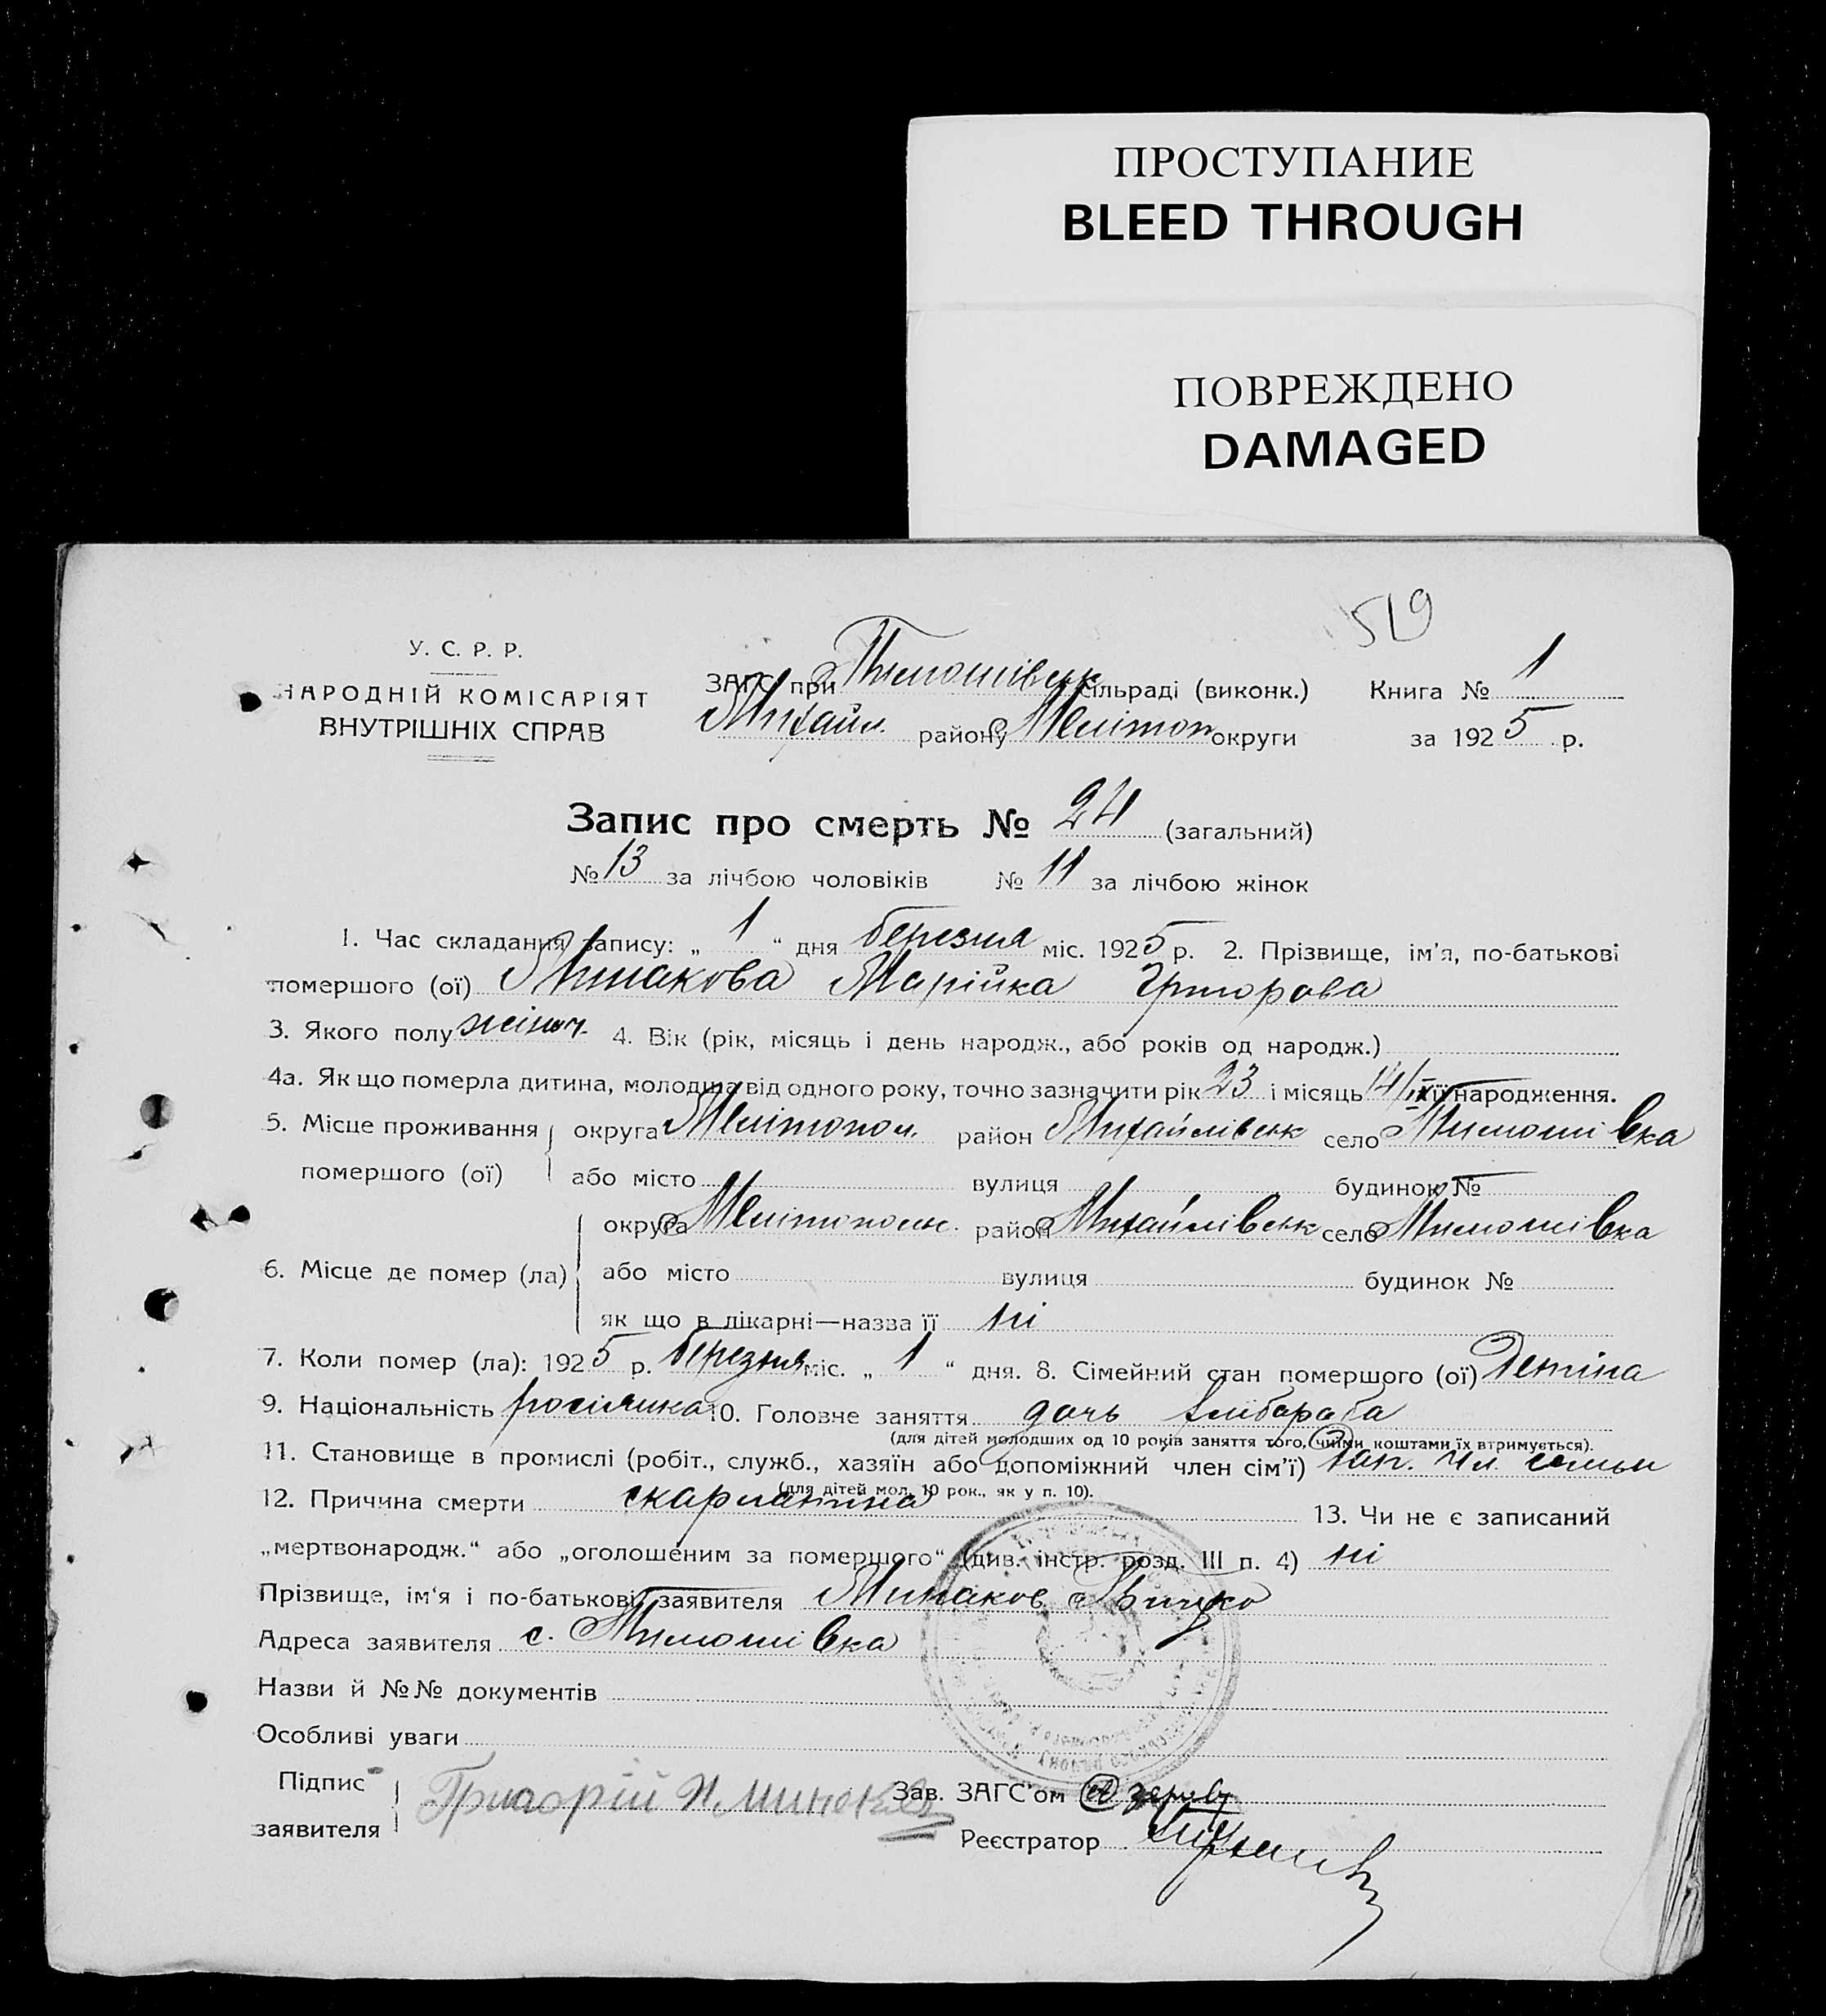 ПРОСТУПАНИЕ
BLEED THROUGH
ПОВРЕЖДЕНО
DAMAGED
519
У. С. Р. Р.
НАРОДНІЙ КОМІСАРІЯТ
ВНУТРІШНІХ СПРАВ
ЗАГС при Тимошівськ сільраді (виконк.) Книга № 1
Михайл. району Мелітоп округи за 1925 р.
Запис про смерть № 24 (загальний)
№ 13 за лічбою чоловіків № 11 за лічбою жінок
1. Час складання запису: „ 1 “ дня березня міс. 1925 р. 2. Прізвище, ім'я, по-батькові
помершого (ої) Минакова Марійка
3. Якого полу жіноч. 4. Вік (рік, місяць і день народж., або років од народж.)
4а. Як що померла дитина, молодша від одного року, точно зазначити рік 23 і місяць 14/IX її народження.
5. Місце проживання округа Мелітопол. район Михайлівськ село Тимошівка
помершого (ої) або місто вулиця будинок №
округа Мелітопольс. район Михайлівськ село Тимошівка
6. Місце де помер (ла) або місто вулиця будинок №
як що в лікарні—назва її ні
7. Коли помер (ла): 1925 р. березня міс. „ 1 “ дня. 8. Сімейний стан помершого (ої) Детіна
9. Національність росіянка 10. Головне заняття дочь хлібороба
(для дітей молодших од 10 років заняття того, чиїми коштами їх втримується).
11. Становище в промислі (робіт., служб., хазяїн або допоміжний член сім'ї) чл. семьи
(для дітей мол. 10 рок., як у п. 10).
12. Причина смерти скарлатина 13. Чи не є записаний
„мертвонародж.“ або „оголошеним за помершого“ (див. інстр. розд. III п. 4) ні
Прізвище, ім'я і по-батькові заявителя Минаков Грицко
Адреса заявителя с. Тимошівка
Назви й №№ документів
Особливі уваги
Підпис
заявителя Григорій Минаков
Зав. ЗАГС'ом
Реєстратор